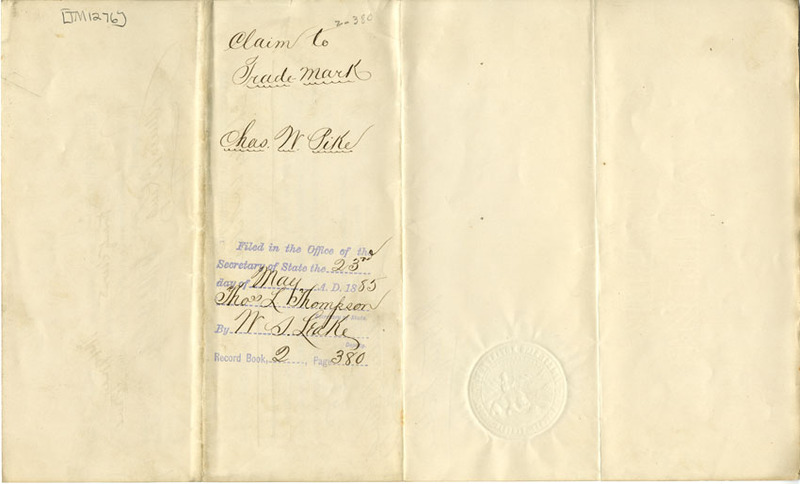 [TM1276]
2-380
Claim to
Trade Mark
Chas. W Pike
Filed in the Office of the
Secretary of State the 23rd
day of May, A. D. 1885
Thos L Thompson
Secretary of State.
By W. S. Leake
Deputy.
Record Book, 2, Page 380